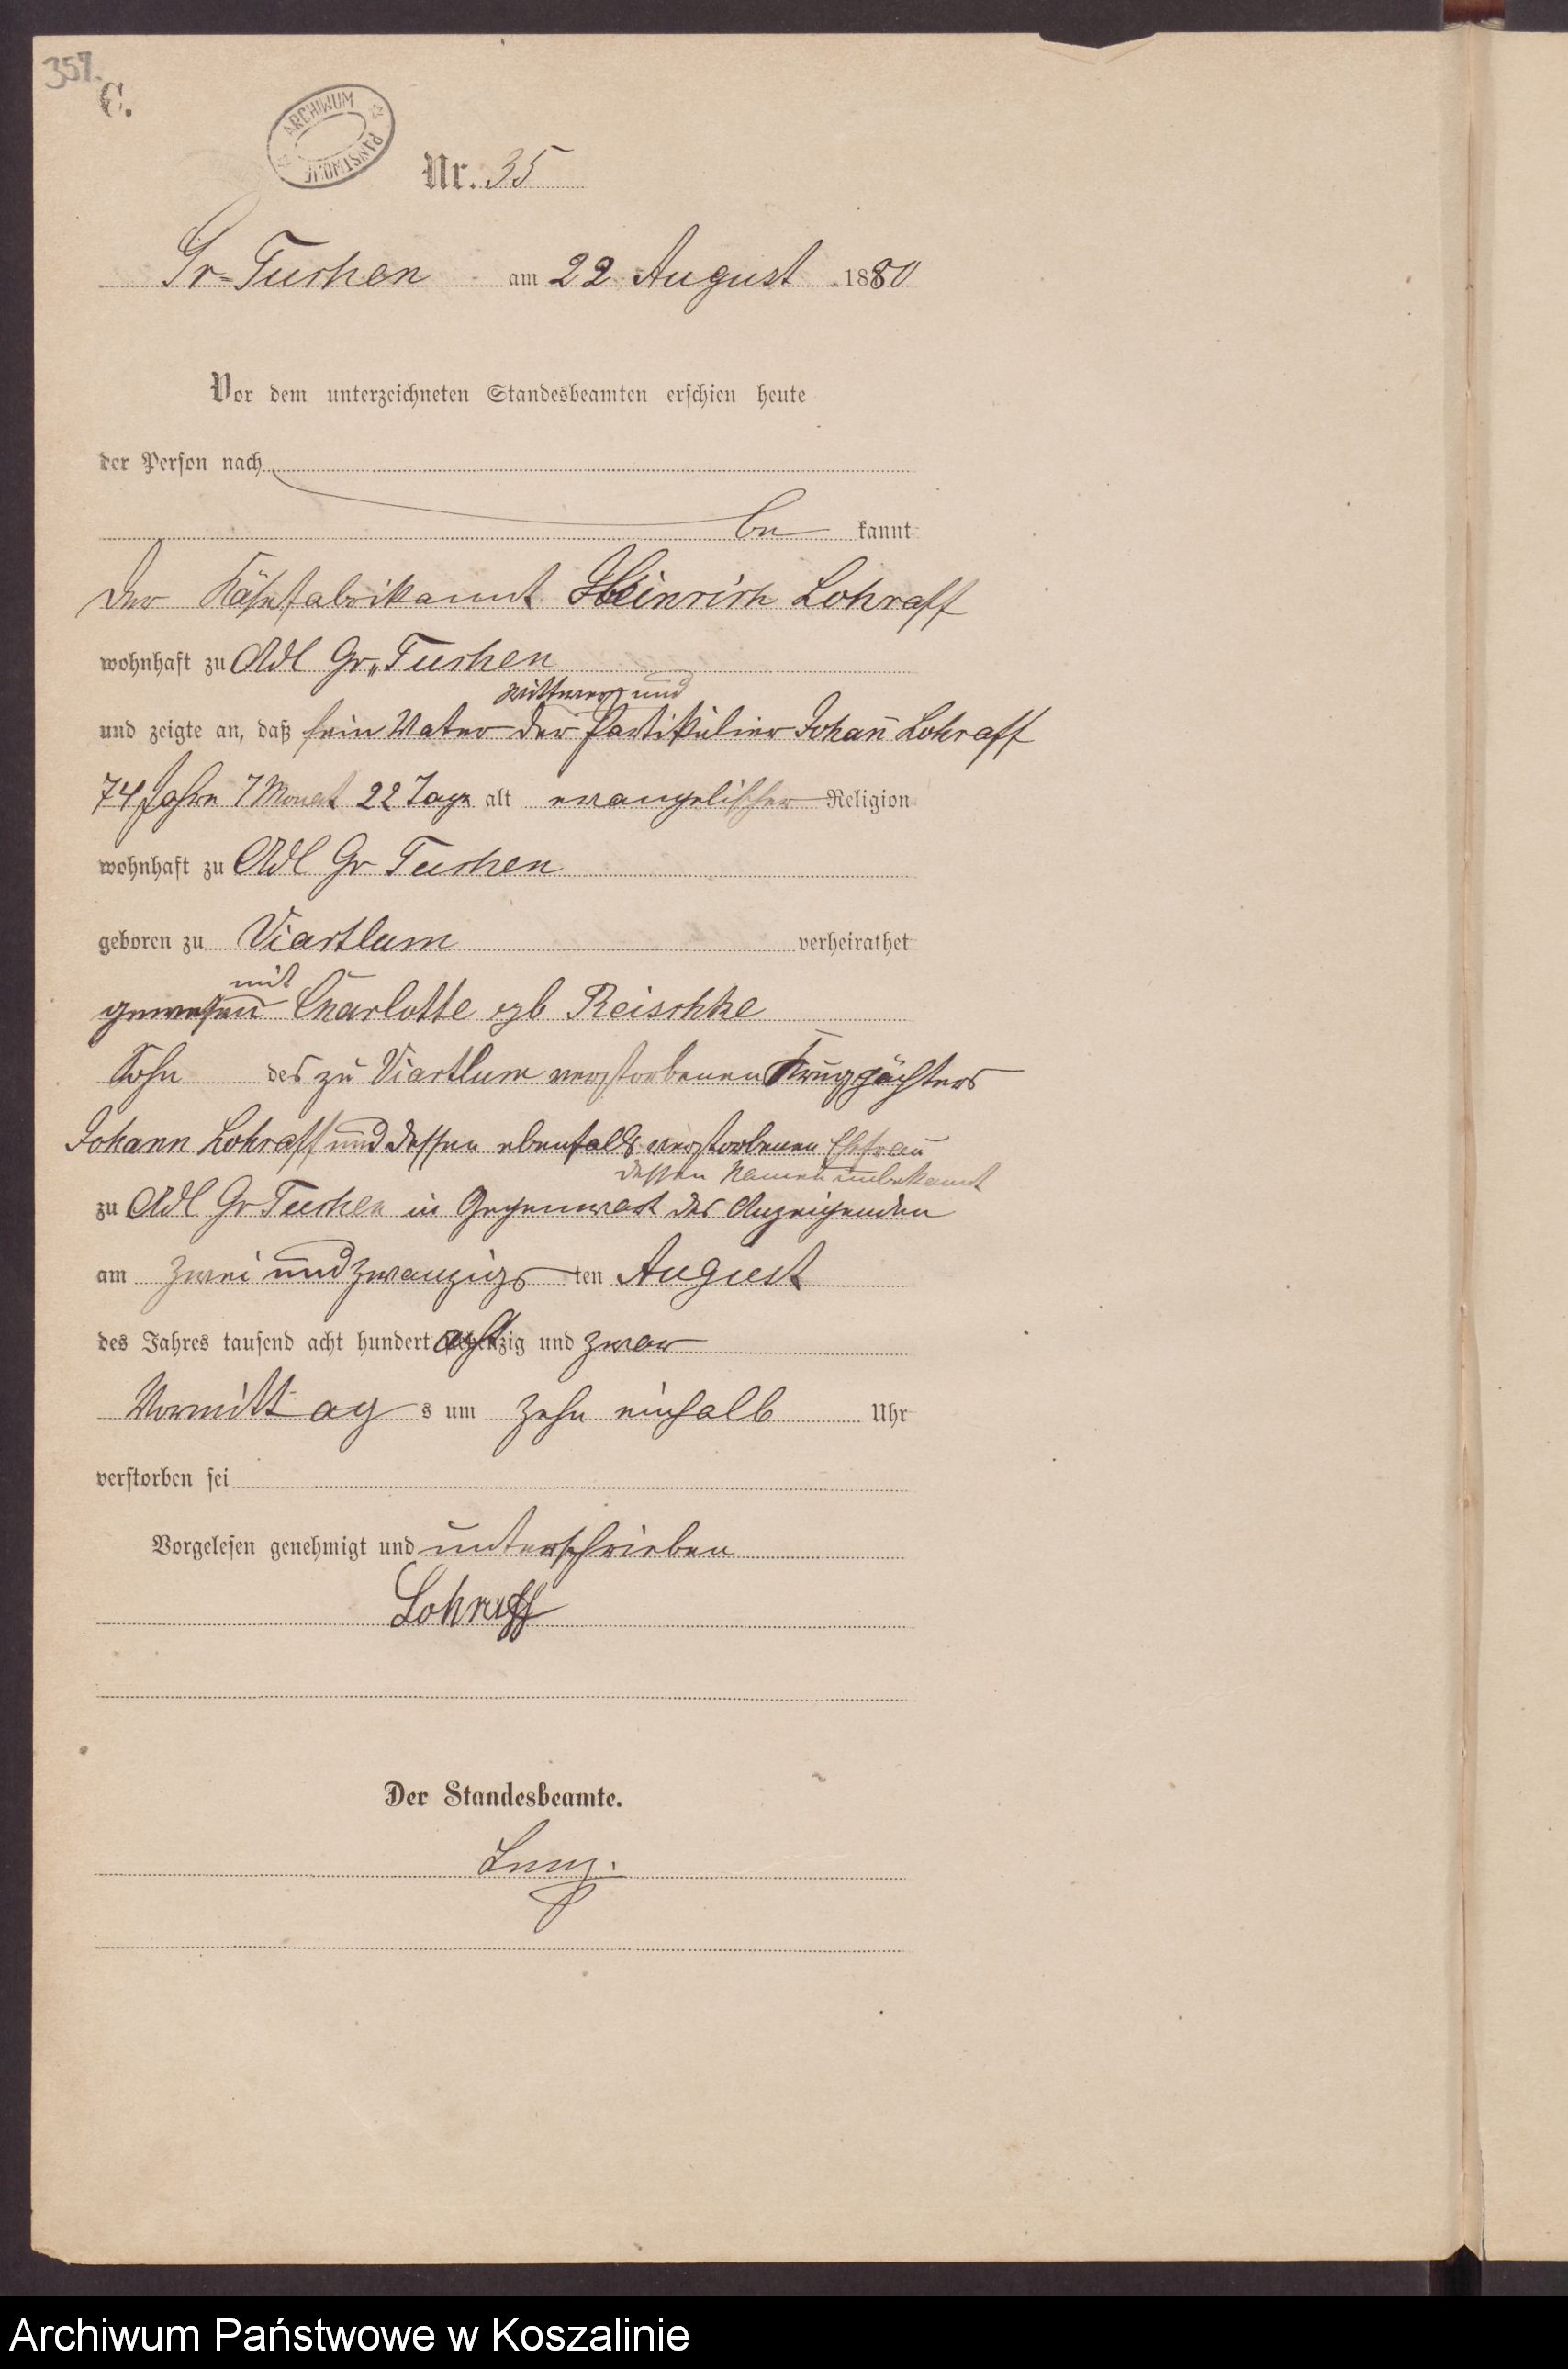 357.
C.
ARCHIWUM PAŃSTWOWE
Nr. 35
Gr=Tuchen am 22 August 1880
Vor dem unterzeichneten Standesbeamten erschien heute
der Person nach
be kannt
der Käsefabrikannt Heinrich Lohraff
wohnhaft zu Adl Gr„ Tuchen
wittwer und
und zeigte an, daß sein Vater der Partikülier Johan̄ Lohraff
74 Jahre 7 Monat 22 Tage alt evangelischer Religion
wohnhaft zu Adl Gr Tuchen
geboren zu Viartlum verheirathet
mit
gewesen Charlotte geb Reischke
Sohn des zu Viartlum verstorbenen Krugpächters
Johann Lohraff und dessen ebenfalls verstorbenen Ehefrau
dessen Namen unbekannt
zu Adl Gr Tuchen in Gegenwart des Anzeigenden
am zwei und zwanzigs ten August
des Jahres tausend acht hundert acht zig und zwar
Vormittag s um zehn einhalb Uhr
verstorben sei
Vorgelesen genehmigt und unterschrieben
Lohraff
Der Standesbeamte.
Archiwum Państwowe w Koszalinie